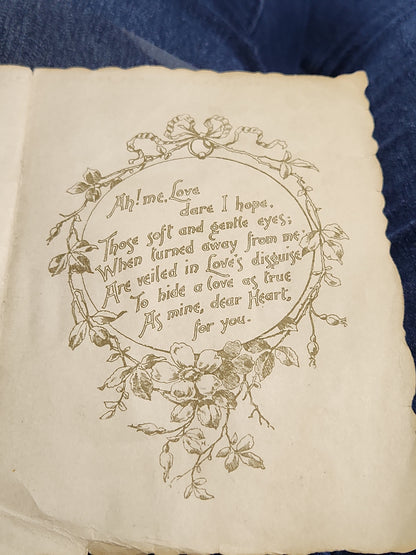 Ah! me, Love
dare I hope,
Those soft and gentle eyes;
When turned away from me,
Are veiled in Love's disguise
To hide a love as true
As mine, dear Heart,
for you.